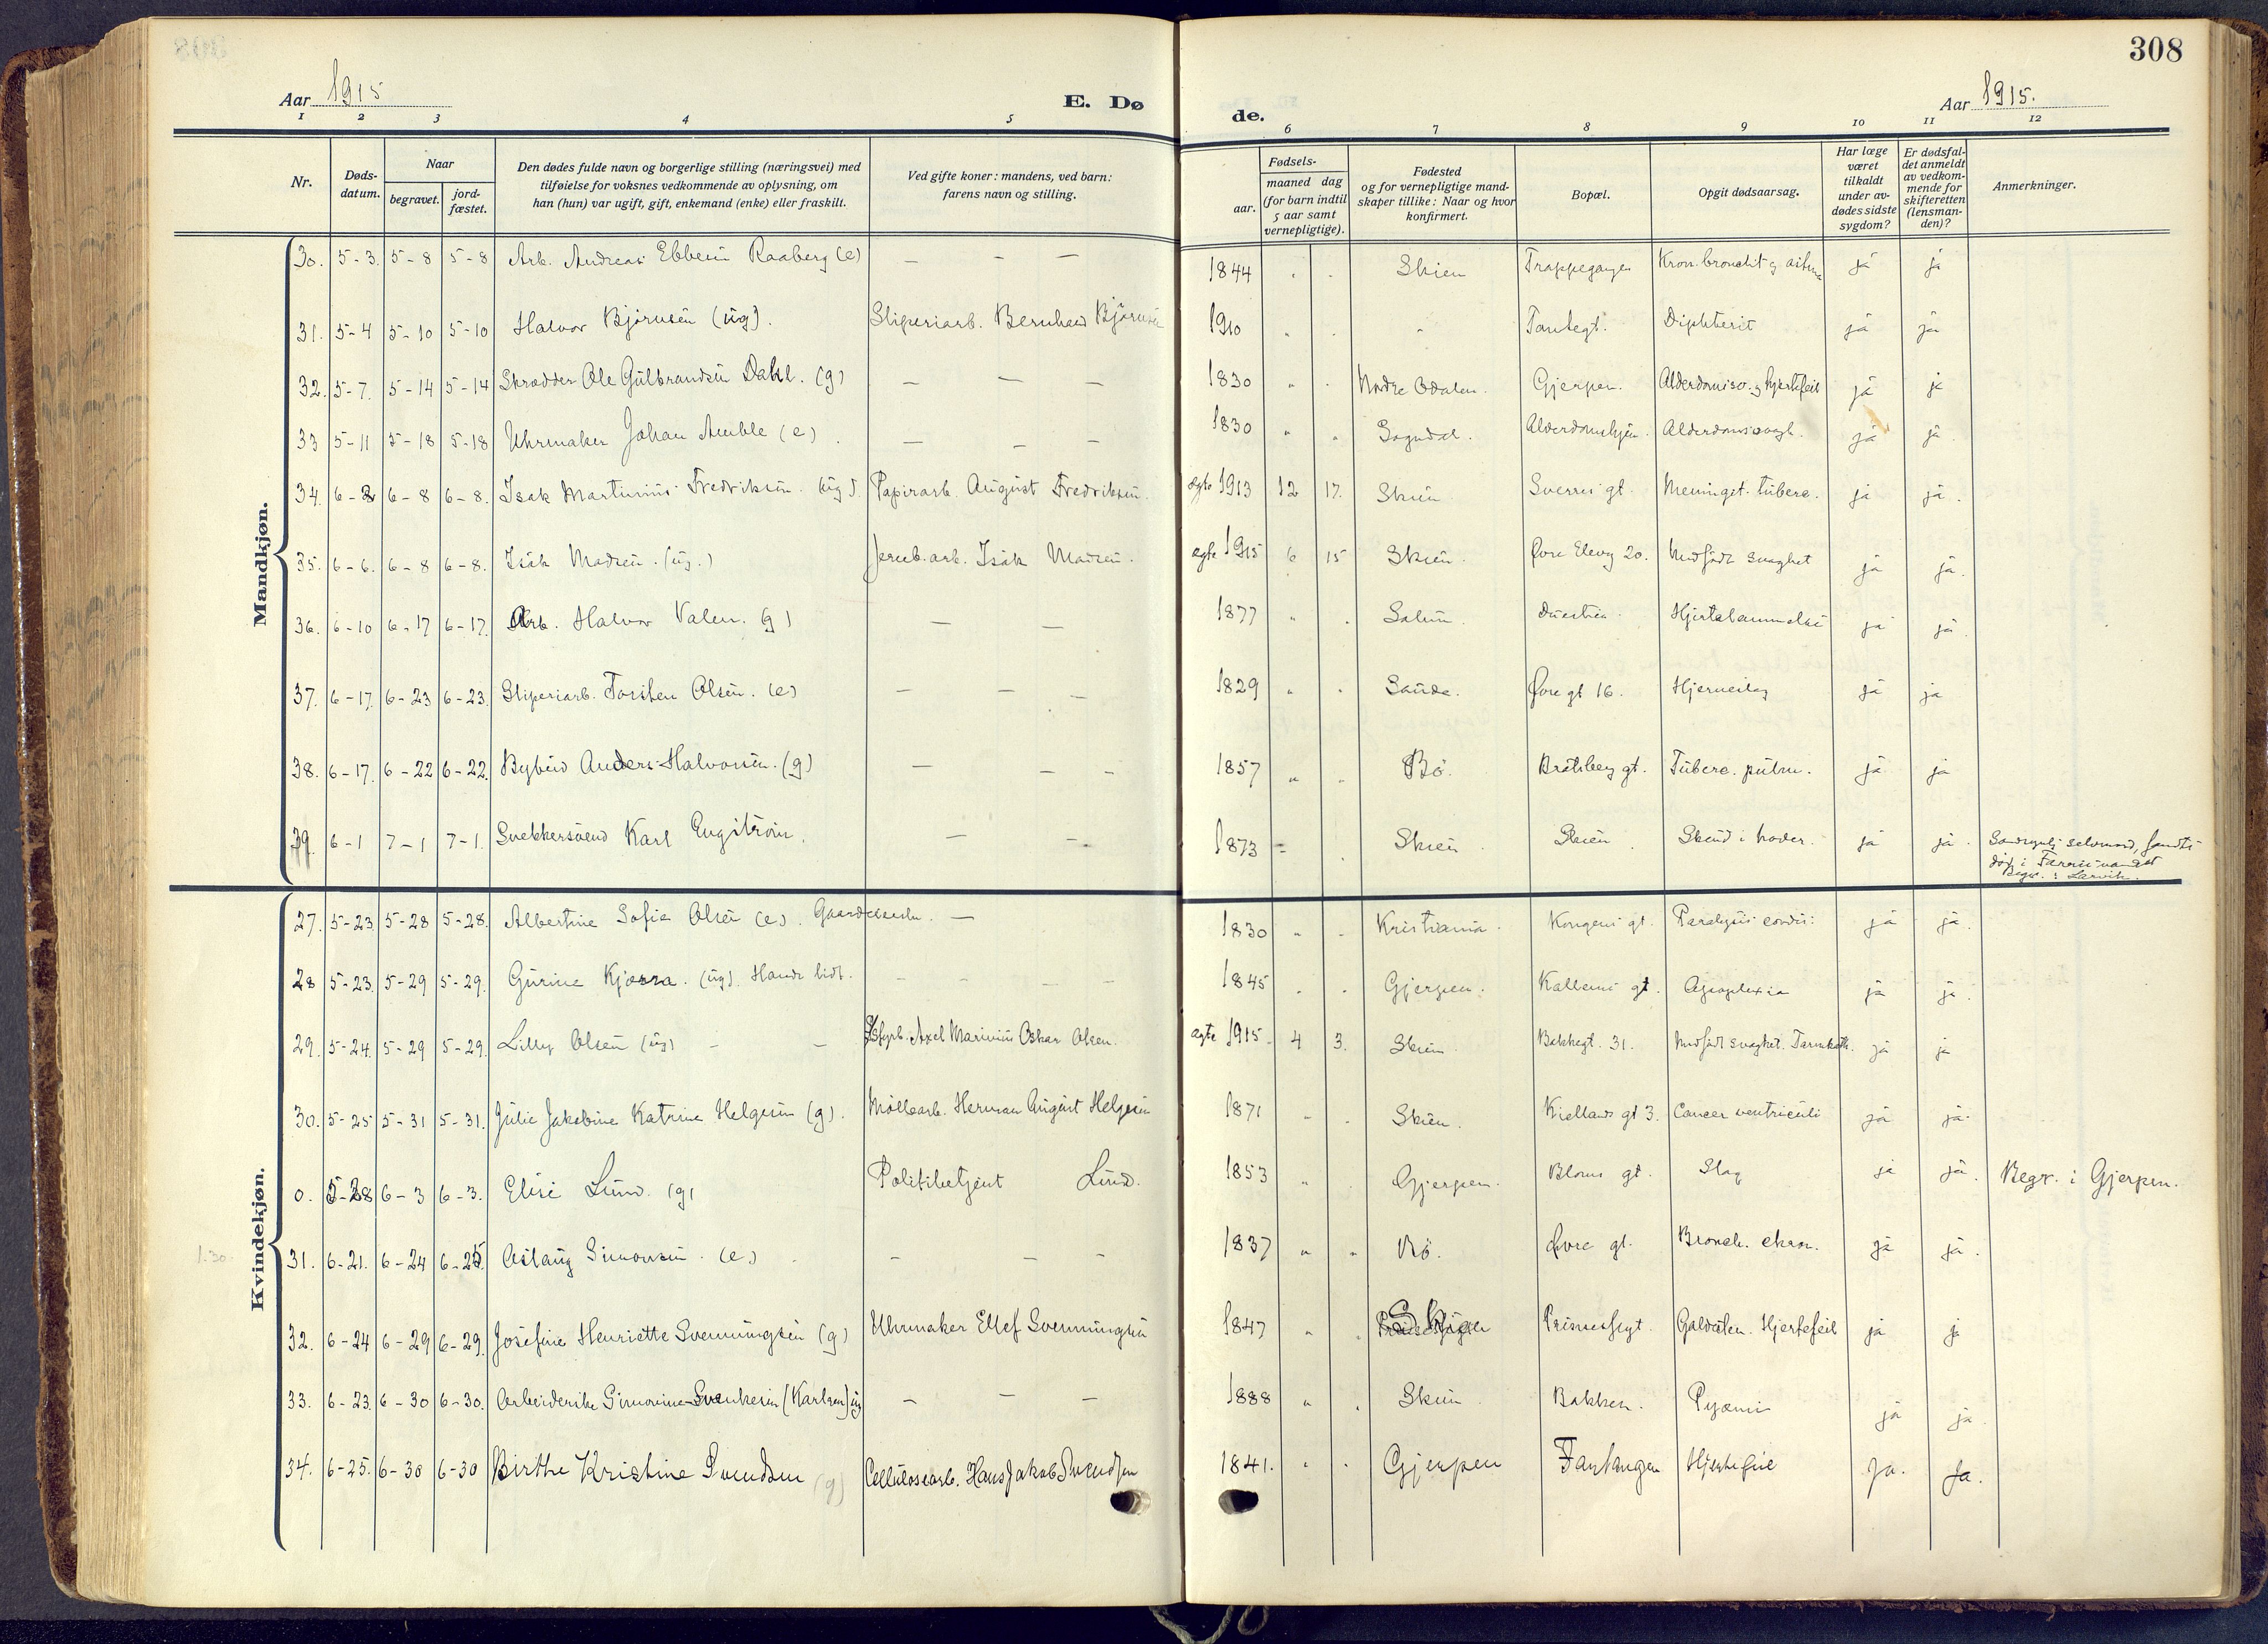 308
Aar 1915
E. Dø
de.
Aar 1915.
1 2 3 4 5 6 7 8 9 10 11 12
Nr.
Døds-
datum.
Naar
begravet.
jord-
fæstet.
Den dødes fulde navn og borgerlige stilling (næringsvei) med
tilføielse for voksnes vedkommende av oplysning, om
han (hun) var ugift, gift, enkemand (enke) eller fraskilt.
Ved gifte koner: mandens, ved barn:
farens navn og stilling.
Fødsels-
aar.
maaned dag
(for barn indtil
5 aar samt
vernepligtige).
Fødested
og for vernepligtige mand-
skaper tillike: Naar og hvor
konfirmert.
Bopæl.
Opgit dødsaarsag.
Har læge
været
tilkaldt
under av-
dødes sidste
sygdom?
Er dødsfal-
det anmeldt
av vedkom-
mende for
skifteretten
(lensman-
den)?
Anmerkninger.
Mandkjøn.
30. 5-3. 5-8 5-8 Arb. Andreas Ebbesen Raaberg (e) — — — 1844 " " Skien Trappegangen Kron. bronchit og ja ja
31. 5-4 5-10 5-10 Halvor Bjørnsen (ug). Sliperiarb. Bernhard Bjørnsen 1910 " " " Tantegt. Diphterit ja ja
32. 5-7. 5-14 5-14 Skrædder Ole Gulbrandsen Dahl. (g) — — — 1830 " " Nordre Odalen. Gjerpen. Alderdomssv. og hjertefeil ja ja
33 5-11 5-18 5-18 Uhrmaker Johan Amble (e). — — — 1830 " " Sogndal. Alderdomshjem. Alderdomssvagh. ja ja.
34. 6-2 6-8 6-8. Isak Martinius Fredriksen. (ug). Papirarb. August Fredriksen. ægte 1913 12 17. Skien Sverres gt. Meningit. tuberc. ja ja.
35. 6-6. 6-8 6-8. Isak Madsen. (ug.) Jernb.arb. Isak Madsen. ægte 1915 6 15 Skien. Øvre Elevg 20. Medfødt svaghet ja ja.
36. 6-10 6-17 6-17. Arb. Halvor Valen. (g) — — 1877 " " Solum. Hjertelammelse ja ja.
37. 6-17. 6-23 6-23. Sliperiarb. Torsten Olsen. (e) — — — 1829 " " Saude. Øvre gt 16. Hjerneslag ja ja
38. 6-17. 6-22 6-22. Bybud Anders Halvorsen. (g) — — — 1857 " " Bø. Bratsberg gt. Tuberc. pulm. ja ja
39. 6-1 7-1 7-1. Snekkersvend Karl Engstrøm. — — 1873 Skien Skien. Skud i hodet. ja ja. Sandsynlig selvmord, fundet
død i Farrisvandet
Begr. i Larvik.
Kvindekjøn.
27. 5-23. 5-28 5-28. Albertine Sofie Olsen (e). Gaardeierske. — 1830 " " Kristiania. Kongens gt. Paralysis cordis: ja ja.
28 5-23. 5-29 5-29. Gurine Kjærra. (ug). — — — — 1845 " " Gjerpen. gt. Apoplexia ja ja.
29. 5-24. 5-29 5-29. Lilly Olsen (ug) — — Axel Marinius Oskar Olsen. ægte 1915. 4 3. Skien. Bakkegt. 31. Medfødt svaghet. Tarmkath. ja ja
30. 5-25 5-31 5-31. Julie Jakobine Katrine Helgesen (g). Møllearb. Herman August Helgesen 1871 " " Skien. Kiellands gt 3. Cancer ventriculi ja ja.
0. 5-28 6-3 6-3. Elise Lund. (g) Politibetjent Lund. 1853 " " Gjerpen. Bloms gt. Slag ja ja. Begr. i Gjerpen.
1.30. 31. 6-21. 6-24 6-25. Aslaug Simonsen. (e) — — — 1837 " " Bø. Øvre gt. Bronch. chron. ja ja.
32. 6-24 6-29 6-29. Josefine Henriette Svenningsen (g) Uhrmaker Ellef Svenningsen 1847 " " Skien Prinsessegt. Galdesten. Hjertefeil ja ja
33. 6-23. 6-30 6-30. Arbeiderske Simonine Svenkesen (Karlsen) ug — — — 1888 " " Skien Bakken. Pyæmi ja ja.
34. 6-25. 6-30 6-30 Birthe Kristine Svendsen (g) Cellulosearb. Hans Jakob Svendsen 1841. " " Gjerpen Fantangen Hjertefeil Ja. Ja.